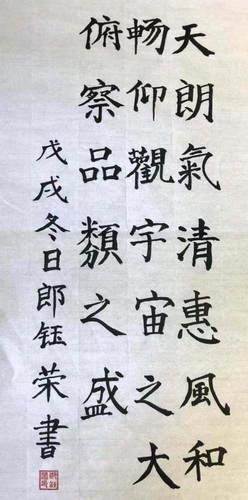 天朗氣清惠風和
畅仰觀宇宙之大
俯察品類之盛
戊戌冬日郎钰荣書